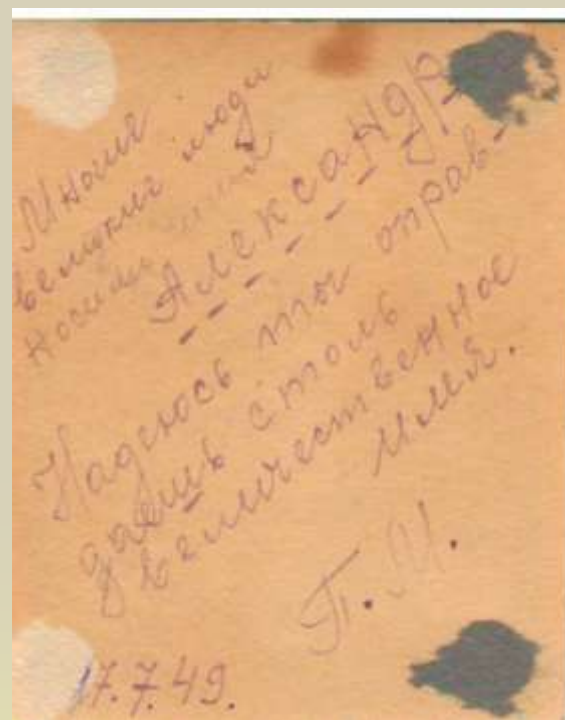 Многие
великие люди
носили имя
Александр.
Надеюсь ты оправ-
даешь столь
величественное
имя.
П.М.
17.7.49.